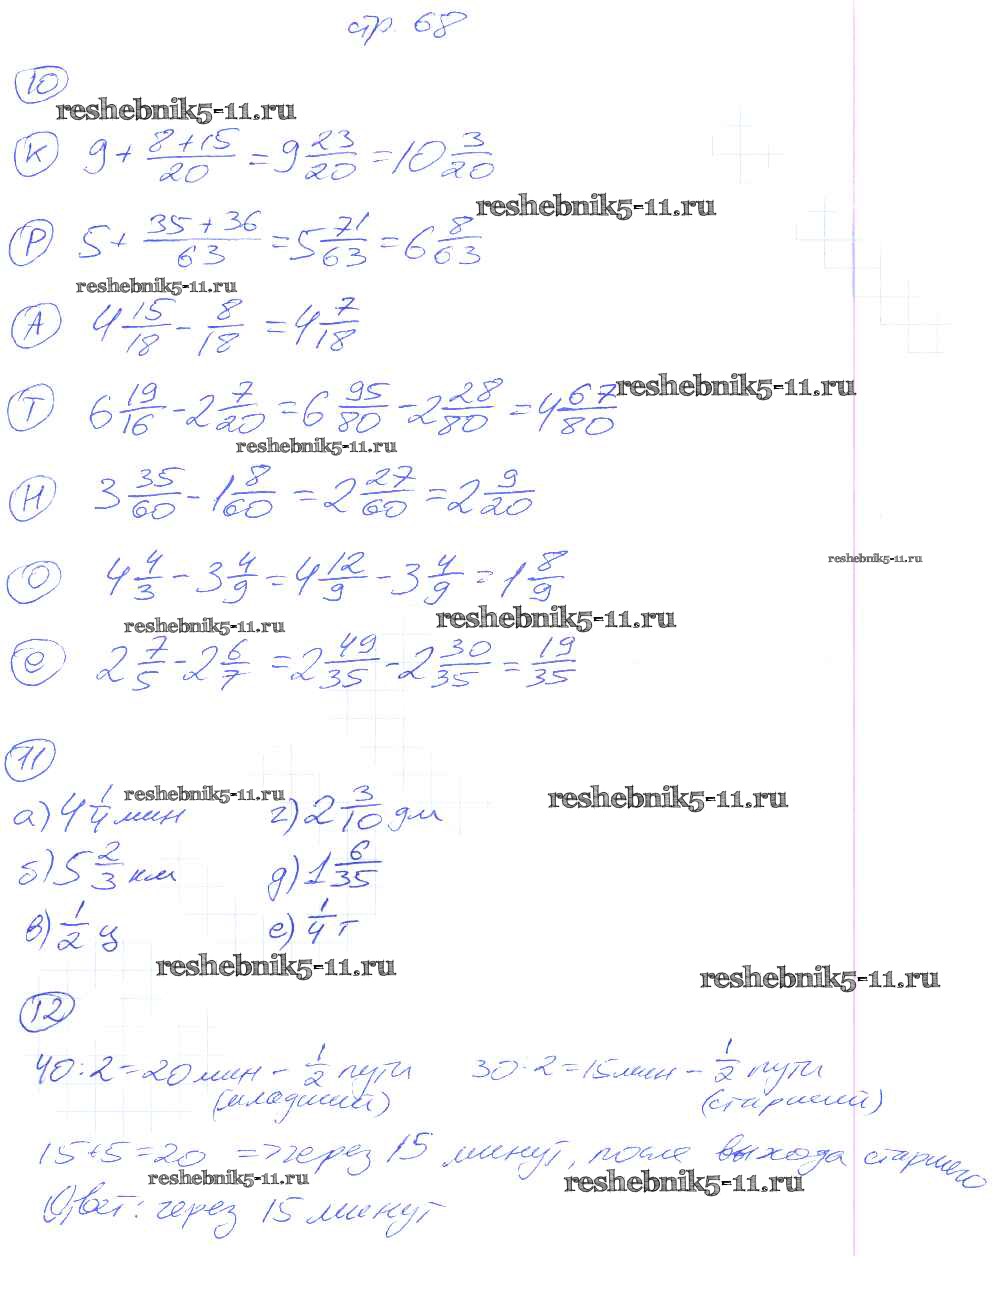 стр. 68
10
reshebnik5-11.ru
К 9 + 8+15/20 = 9 23/20 = 10 3/20
reshebnik5-11.ru
Р 5 + 35+36/63 = 5 71/63 = 6 8/63
reshebnik5-11.ru
А 4 15/18 - 8/18 = 4 7/18
reshebnik5-11.ru
Т 6 19/16 - 2 7/20 = 6 95/80 - 2 28/80 = 4 67/80
reshebnik5-11.ru
Н 3 35/60 - 1 8/60 = 2 27/60 = 2 9/20
reshebnik5-11.ru
О 4 4/3 - 3 4/9 = 4 12/9 - 3 4/9 = 1 8/9
reshebnik5-11.ru
reshebnik5-11.ru
е 2 7/5 - 2 6/7 = 2 49/35 - 2 30/35 = 19/35
11
reshebnik5-11.ru
reshebnik5-11.ru
а) 4 1/4 мин г) 2 3/10 дм
б) 5 2/3 км д) 1 6/35
в) 1/2 ц е) 1/4 т
reshebnik5-11.ru
reshebnik5-11.ru
12
40:2=20 мин - 1/2 пути 30:2=15 мин - 1/2 пути
(младший) (старший)
15+5=20 => через 15 минут, после выхода старшего
reshebnik5-11.ru
reshebnik5-11.ru
Ответ: через 15 минут